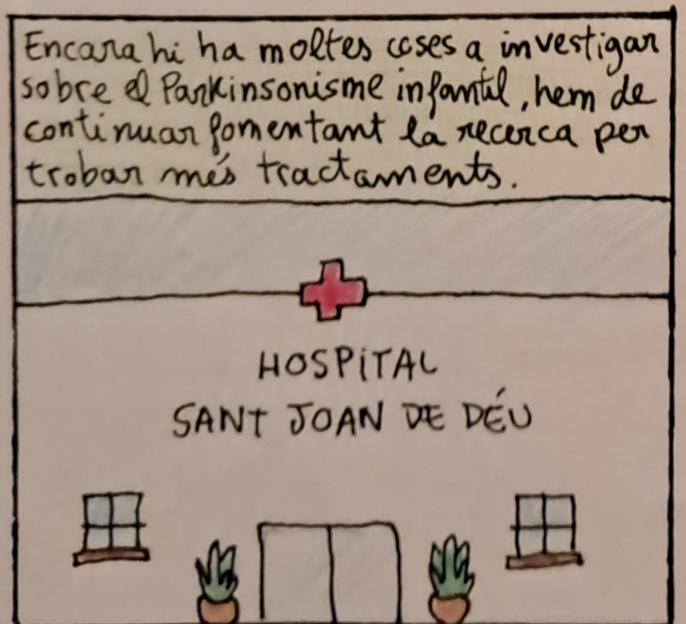 Encara hi ha moltes coses a investigar
sobre el Parkinsonisme infantil, hem de
continuar fomentant la recerca per
trobar més tractaments.
HOSPiTAL
SANT JOAN DE DÉU